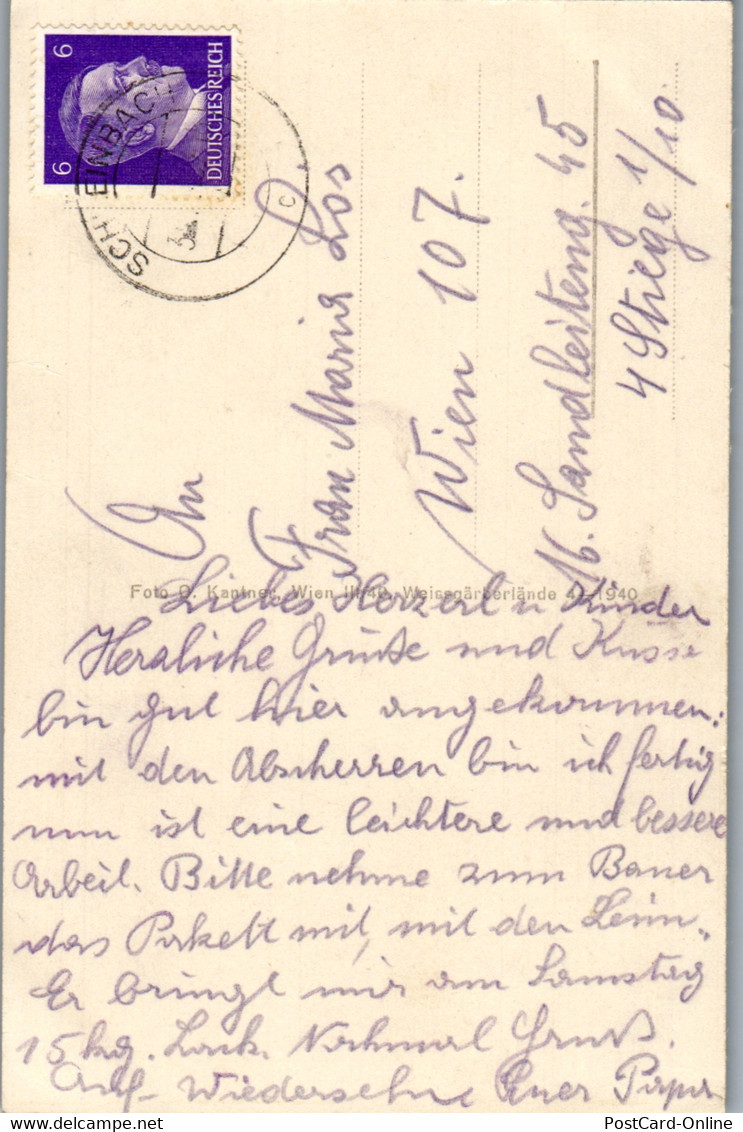 6 6
DEUTSCHES REICH
c
An
Frau Maria Los
Wien 107.
16. Sandleiteng. 45
4 Stiege 1/10.
Foto O. Kantner, Wien III/40, Weissgärberlände 4 — 1940
Liebes Herzerl u Kinder
Herzliche Grüße und Küsse
bin gut hier angekommen:
mit den Abscherren bin ich fertig
nun ist eine leichtere und bessere
Arbeit. Bitte nehme zum Bauer
das Pakett mit, mit den Leim„
Er bringt mir am Samstag
15 kg. Lack. Nochmal Gruß.
Auf-Wiedersehn Euer Papa
PostCard-Online